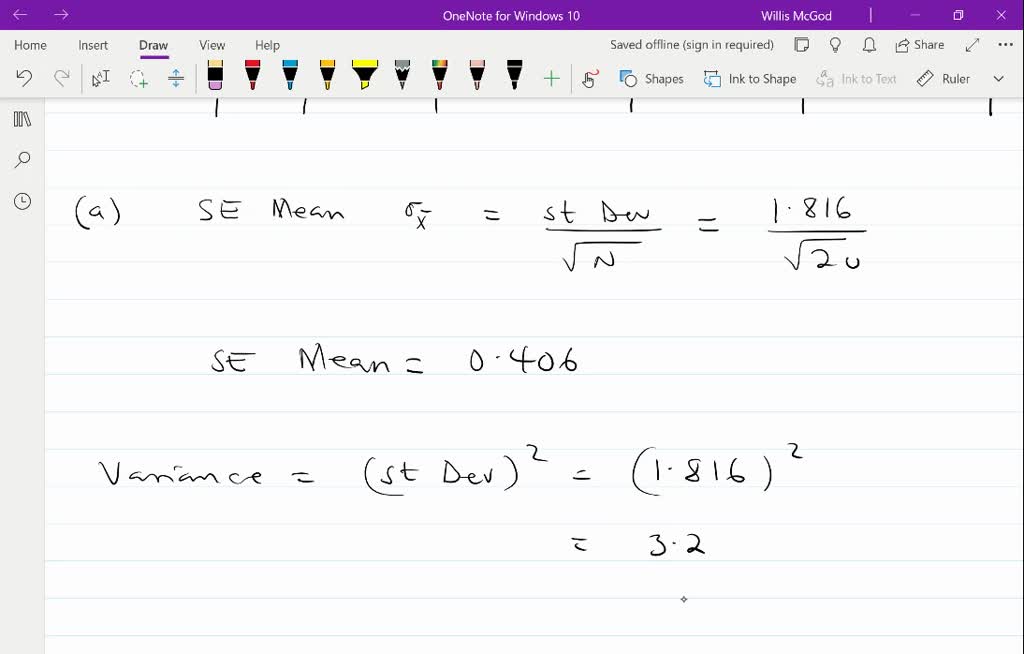 OneNote for Windows 10
Willis McGod
Home Insert Draw View Help
Saved offline (sign in required)
Share
Shapes
Ink to Shape
Ink to Text
Ruler
(a) SE Mean σx̄ = st Dev / √N = 1.816 / √20
SE Mean = 0.406
Variance = (st Dev)² = (1.816)²
= 3.2